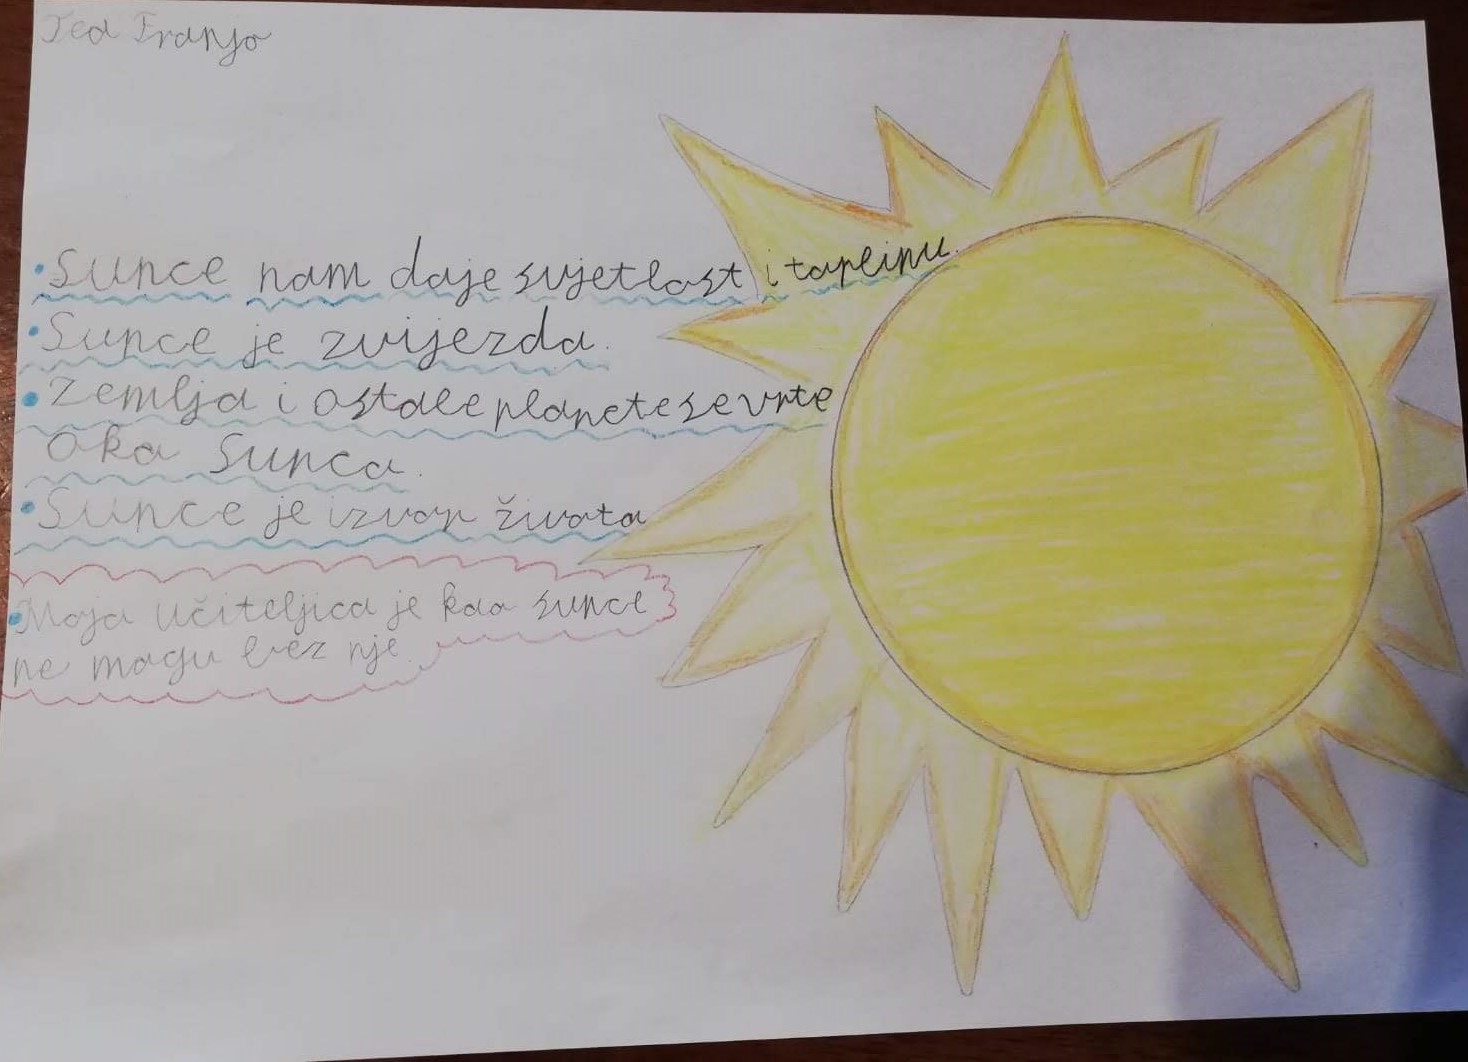 Ted Franjo
• Sunce nam daje svjetlost i toplinu.
• Sunce je zvijezda.
• Zemlja i ostale planete se vrte
oko Sunca.
• Sunce je izvor života
• Moja učiteljica je kao sunce
ne mogu bez nje.